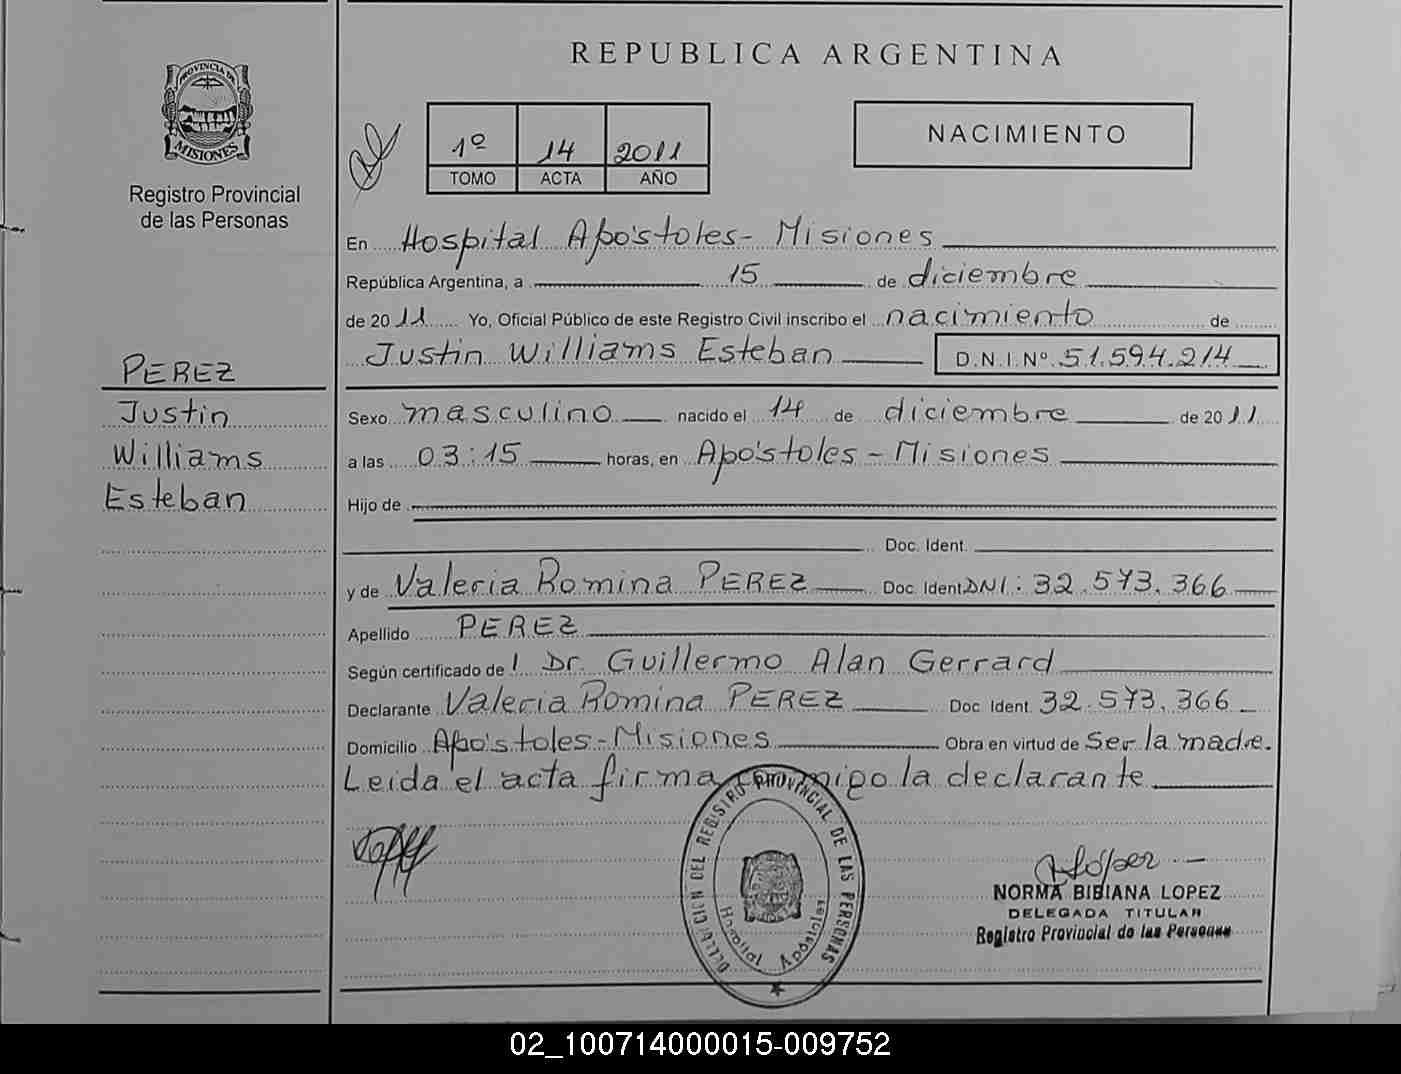 REPUBLICA ARGENTINA
PROVINCIA DE
MISIONES
Registro Provincial
de las Personas
1º 14 2011
TOMO ACTA AÑO
NACIMIENTO
PEREZ
Justin
Williams
Esteban
En Hospital Apóstoles - Misiones
República Argentina, a 15 de diciembre
de 2011 Yo, Oficial Público de este Registro Civil inscribo el nacimiento de
Justin Williams Esteban D.N.I.Nº 51.594.214
Sexo masculino nacido el 14 de diciembre de 2011
a las 03:15 horas, en Apóstoles - Misiones
Hijo de
Doc. Ident.
y de Valeria Romina PEREZ Doc. Ident DNI: 32.573.366
Apellido PEREZ
Según certificado de l Dr. Guillermo Alan Gerrard
Declarante Valeria Romina PEREZ Doc. Ident. 32.573.366
Domicilio Apóstoles - Misiones Obra en virtud de Ser la madre.
Leída el acta firma conmigo la declarante
DEL REGISTRO PROVINCIAL DE LAS PERSONAS
Hospital Apóstoles
NORMA BIBIANA LOPEZ
DELEGADA TITULAR
Registro Provincial de las Personas
02_100714000015-009752